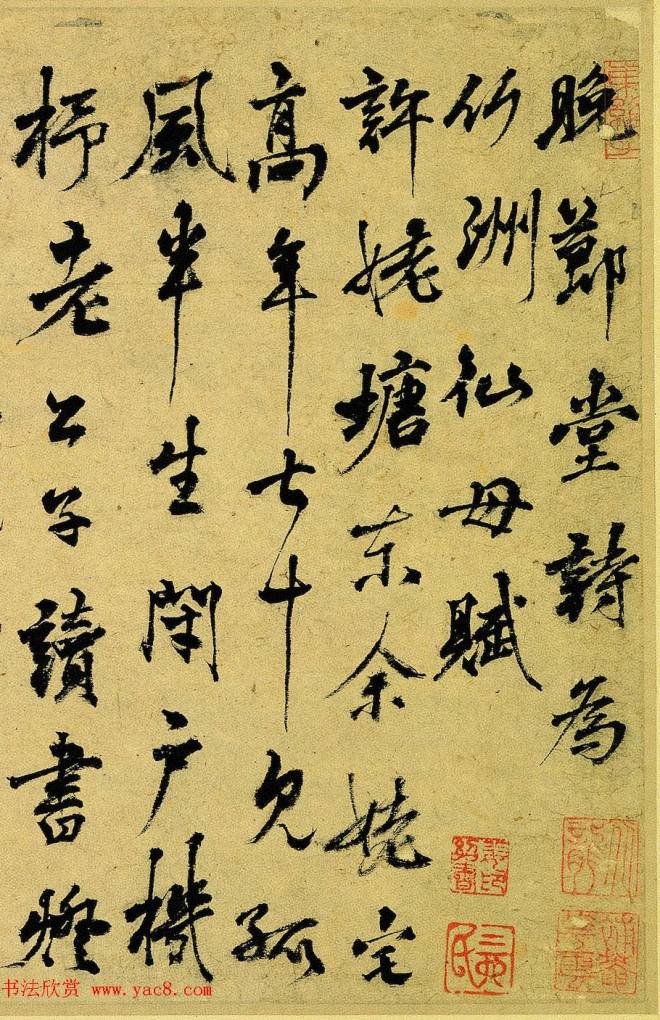 晚節堂詩為
竹洲仙母賦
許姥塘東余姥宅
高年七十見孤
風半生閑戶機
杼老公子讀書燈
书法欣赏 www.yac8.com